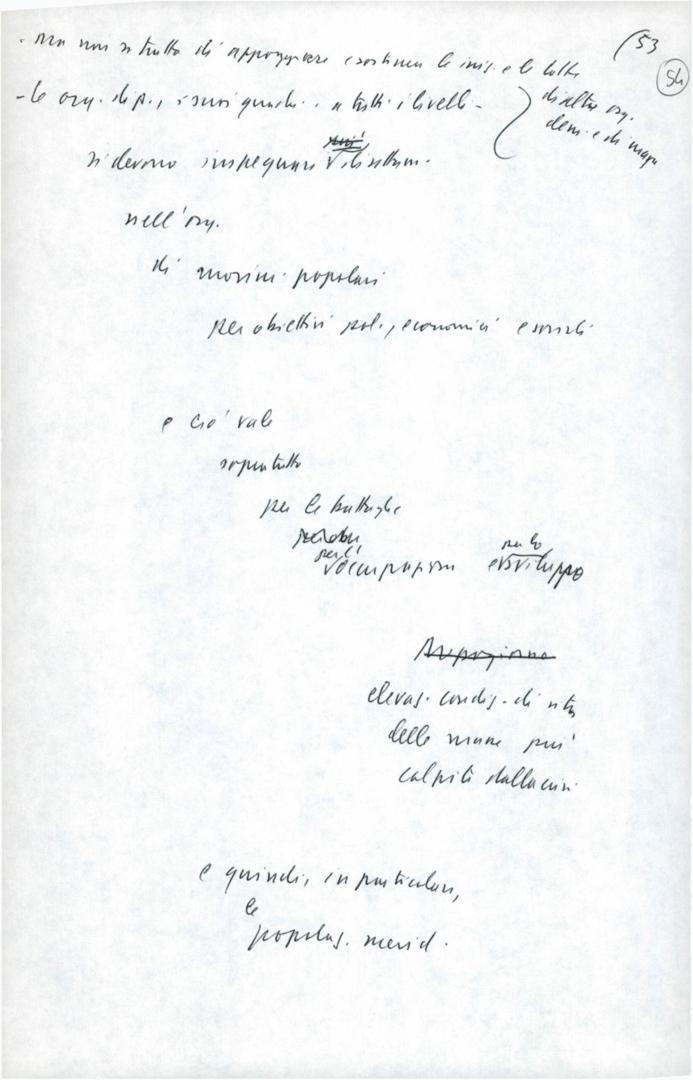 (53
54
- ma non si tratta di appoggiare e sostenere le iniz. e le lotte
di altre org.
dem. e di massa
- le org. di p., i suoi quadri a tutti i livelli -
si devono impegnare direttam.
nell'org.
di movim. popolari
per obiettivi pol., economici e sociali
e ciò vale
soprattutto
per le battaglie
per l' per lo
occupazione e sviluppo
elevaz. condiz. di vita
delle masse più
colpite dalla crisi
e quindi, in particolare,
le
popolaz. merid.